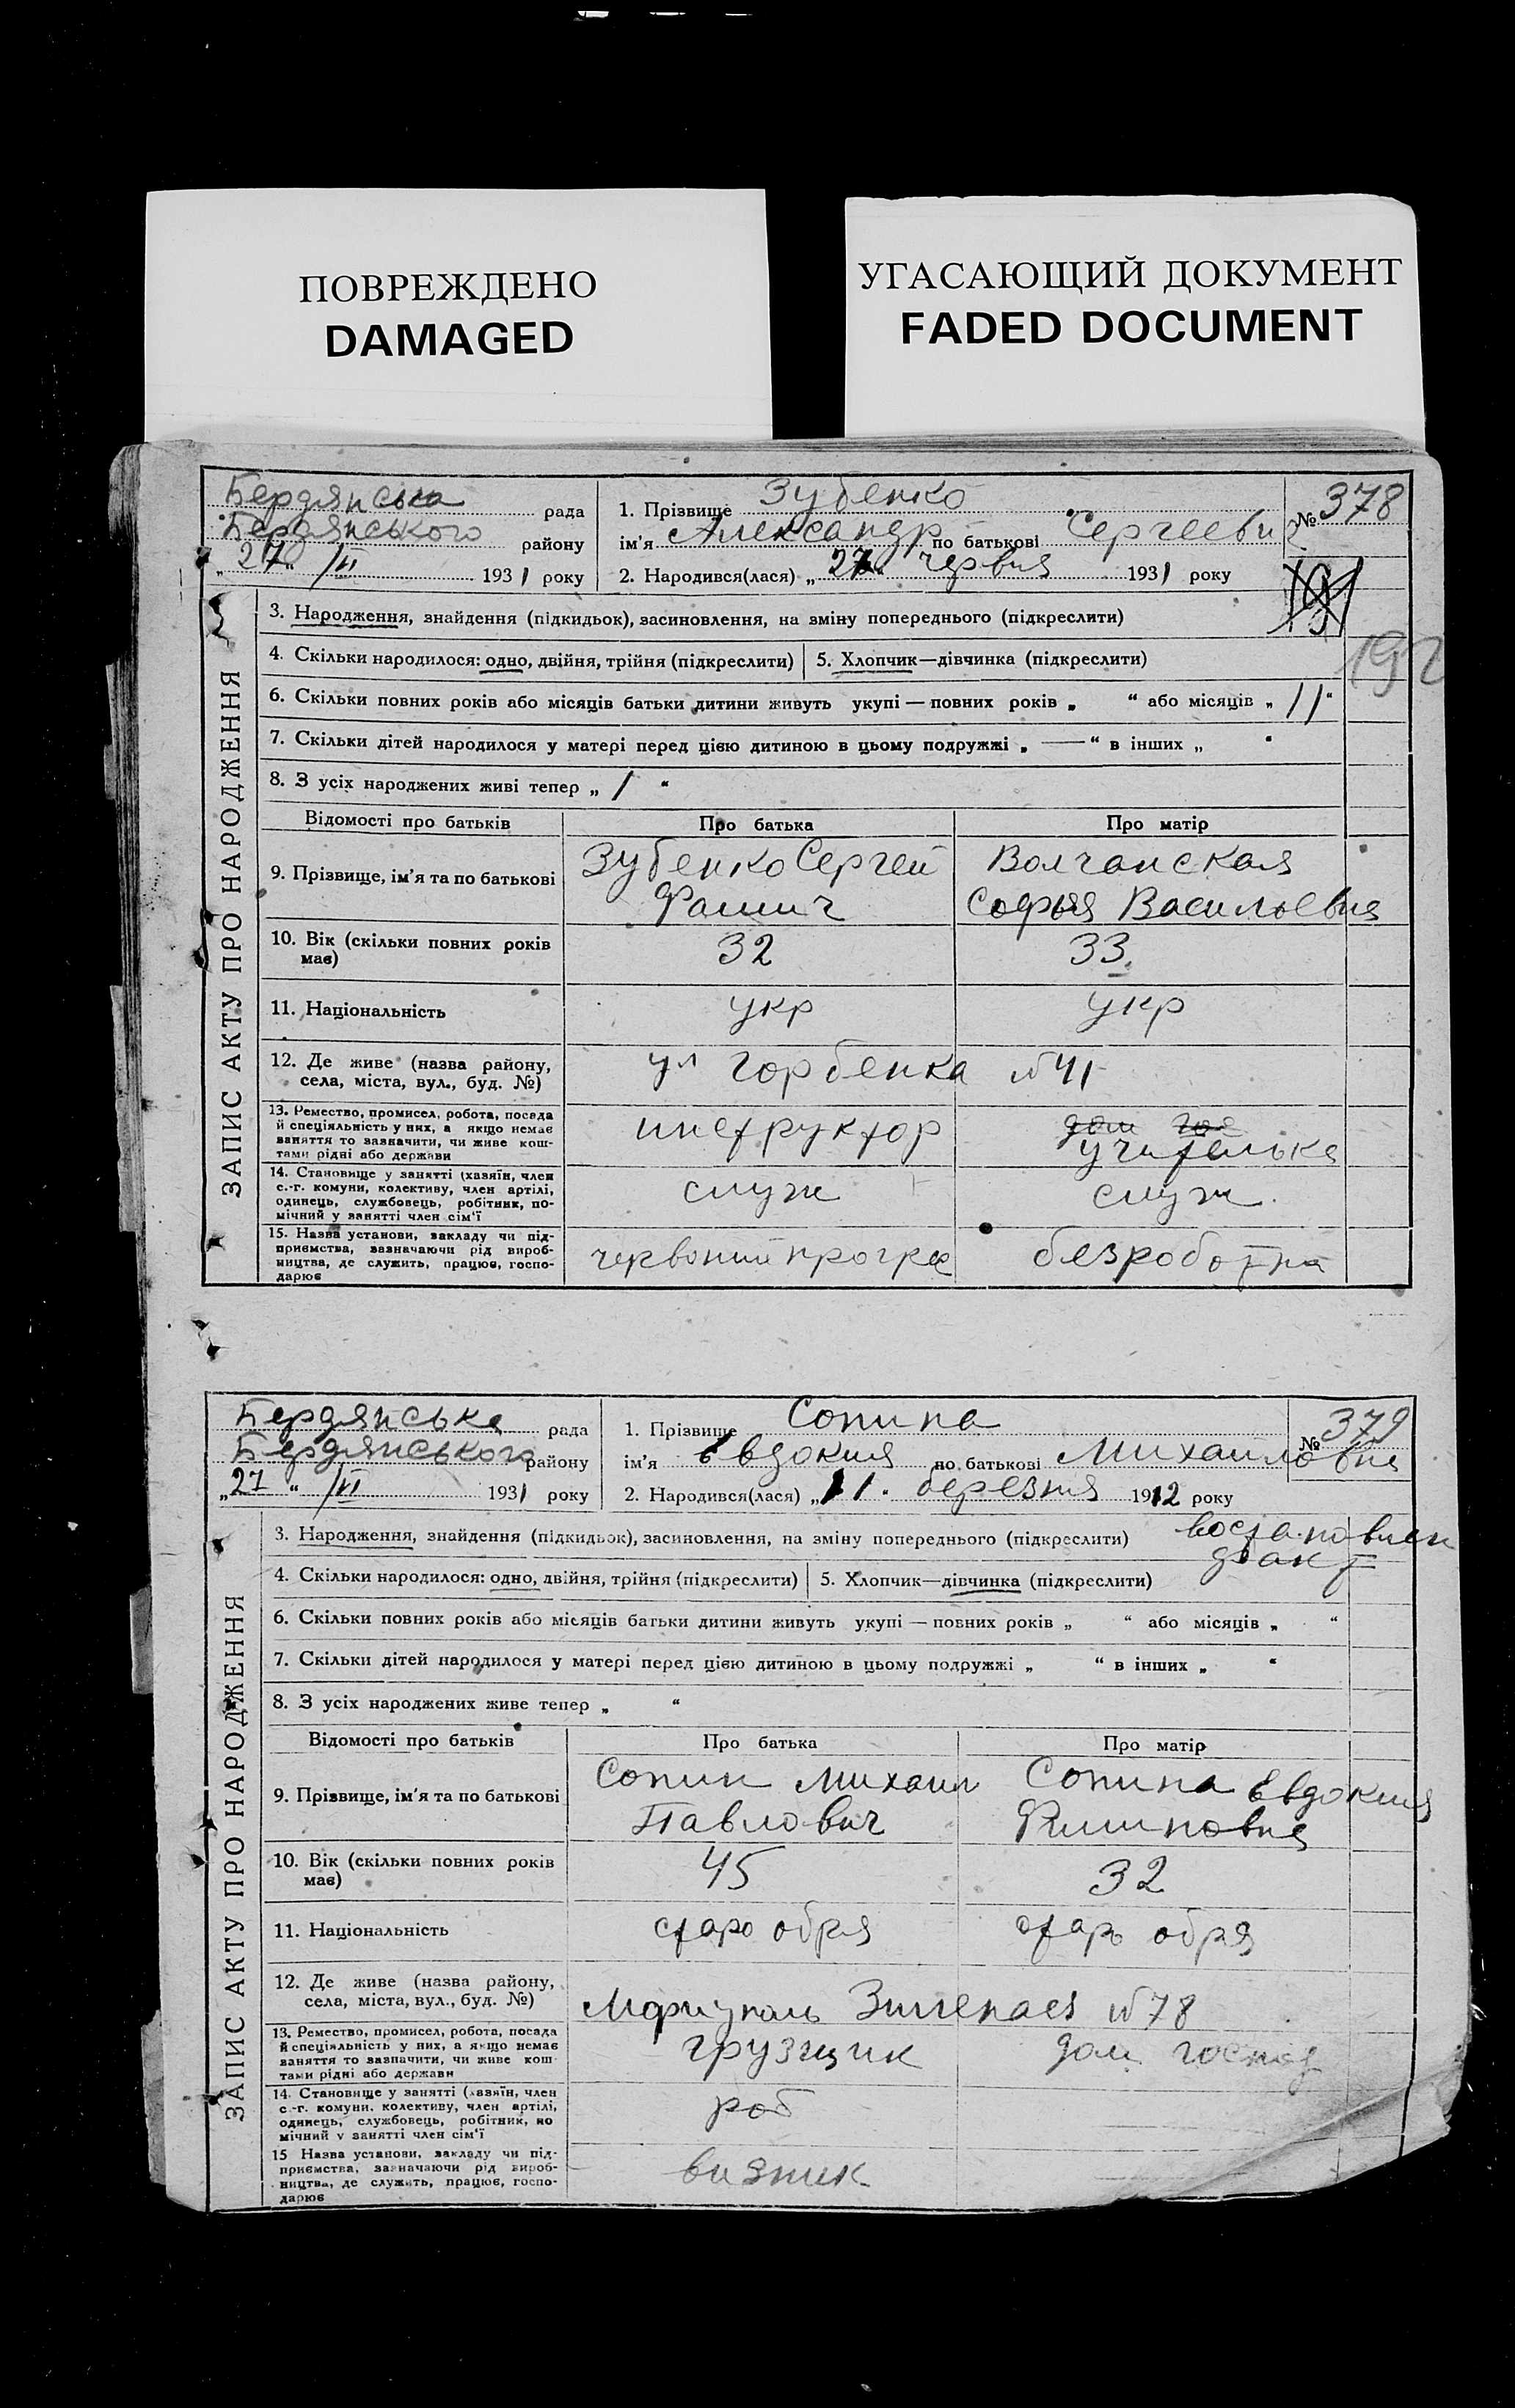 ПОВРЕЖДЕНО
DAMAGED
УГАСАЮЩИЙ ДОКУМЕНТ
FADED DOCUMENT
ЗАПИС АКТУ ПРО НАРОДЖЕННЯ
Бердянська рада
Бердянського району
„27“ /VI 1931 року
1. Прізвище Зубенко
ім'я Александр по батькові Сергеевич
2. Народився(лася) „27“ червня 1931 року
№ 378
192
3. Народження, знайдення (підкидьок), засиновлення, на зміну попереднього (підкреслити)
4. Скільки народилося: одно, двійня, трійня (підкреслити) 5. Хлопчик—дівчинка (підкреслити)
6. Скільки повних років або місяців батьки дитини живуть укупі — повних років „ “ або місяців „ 11 “
7. Скільки дітей народилося у матері перед цією дитиною в цьому подружжі „ — “ в інших „ “
8. З усіх народжених живі тепер „ 1 “
Відомості про батьків Про батька Про матір
9. Прізвище, ім'я та по батькові
Зубенко Сергей
Волчанская
Софья Васильевна
10. Вік (скільки повних років має) 32 33.
11. Національність укр укр
12. Де живе (назва району,
села, міста, вул., буд. №)
ул Горбенка №41
13. Ремество, промисел, робота, посада
й спеціяльність у них, а якщо немає
заняття то зазначити, чи живе кош-
тами рідні або держави
инструктор
учителька
14. Становище у занятті (хазяїн, член
с.-г. комуни, колективу, член артілі,
одинець, службовець, робітник, по-
мічний у занятті член сім'ї
служ служ.
15. Назва установи, закладу чи під-
приємства, зазначаючи рід вироб-
ництва, де служить, працює, госпо-
дарює
червоний прогрес
безработна
ЗАПИС АКТУ ПРО НАРОДЖЕННЯ
Бердянська рада
Бердянського району
„27“ /VI 1931 року
1. Прізвище Сопина
ім'я Евдокия по батькові Михаиловна
2. Народився(лася) „11. березня 1912 року
№ 379
3. Народження, знайдення (підкидьок), засиновлення, на зміну попереднього (підкреслити)
4. Скільки народилося: одно, двійня, трійня (підкреслити) 5. Хлопчик—дівчинка (підкреслити)
6. Скільки повних років або місяців батьки дитини живуть укупі — повних років „ “ або місяців „ “
7. Скільки дітей народилося у матері перед цією дитиною в цьому подружжі „ “ в інших „ “
8. З усіх народжених живе тепер „ “
Відомості про батьків Про батька Про матір
9. Прізвище, ім'я та по батькові
Сопин Михаил
Павлович
Сопина Евдокия
Филиповна
10. Вік (скільки повних років має) 45 32
11. Національність старо обря старо обря
12. Де живе (назва району,
села, міста, вул., буд. №)
Мариуполь №78
13. Ремество, промисел, робота, посада
й спеціяльність у них, а якщо немає
заняття то зазначити, чи живе кош-
тами рідні або держави
грузщик
дом господ
14. Становище у занятті (хазяїн, член
с.-г. комуни, колективу, член артілі,
одинець, службовець, робітник, по
мічний у занятті член сім'ї
роб
15 Назва установи, закладу чи під-
приємства, зазначаючи рід вироб-
ництва, де служить, працює, госпо-
дарює
визник